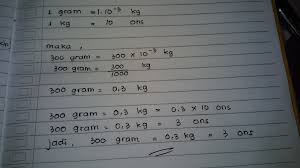 1 gram = 1.10⁻³ kg
1 kg = 10 ons
maka,
300 gram = 300 x 10⁻³ kg
300 gram = 300/1000 kg
300 gram = 0.3 kg
300 gram = 0.3 kg = 0.3 x 10 ons
300 gram = 0.3 kg = 3 ons
jadi, 300 gram = 0.3 kg = 3 ons